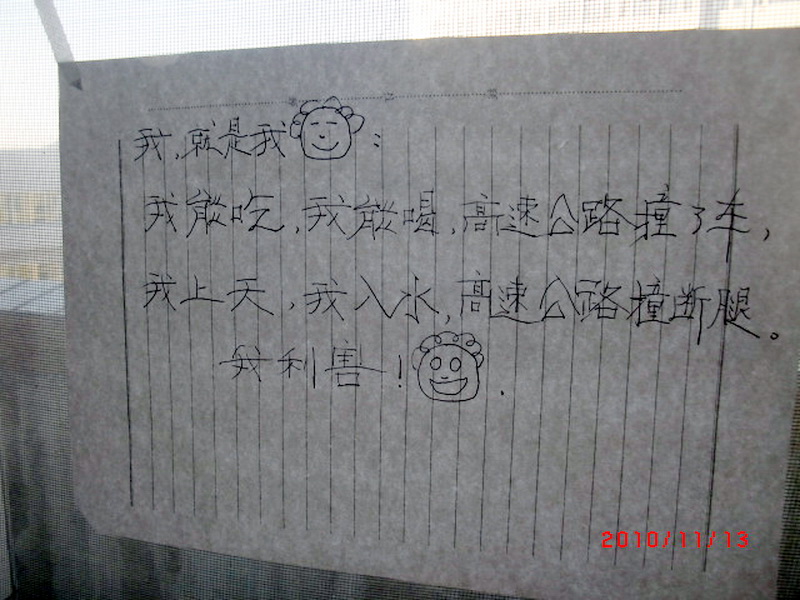 我,就是我:
我能吃,我能喝,高速公路撞了车,
我上天,我入水,高速公路撞断腿。
我利害!.
2010/11/13